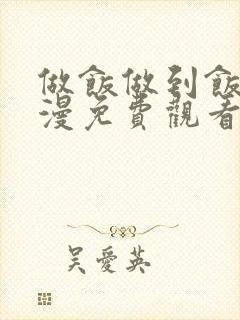 做飯做到飯
漫免費觀看
吳愛英